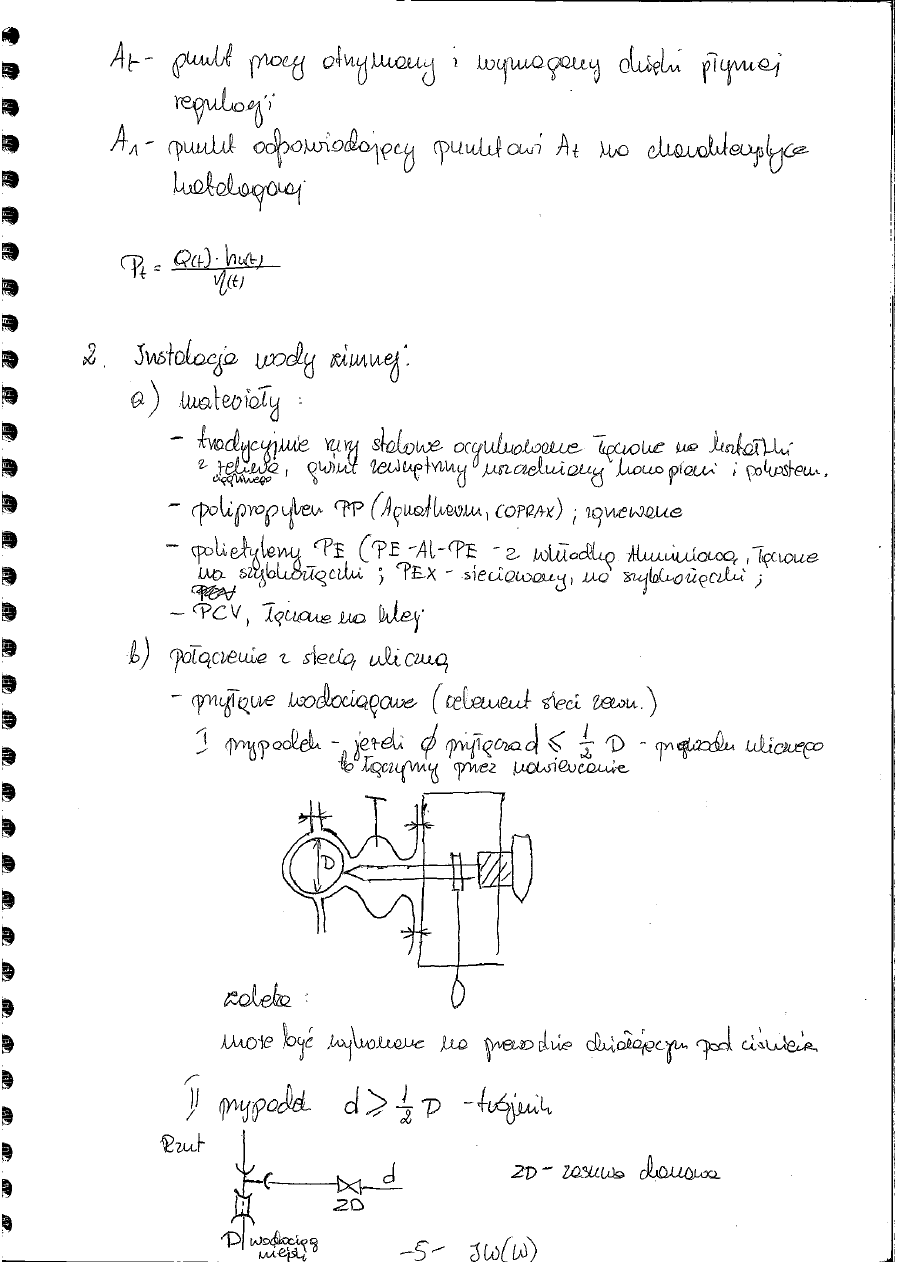 At - punkt pracy otrzymany i wymagany dzięki płynnej
regulacji
A1 - punkt odpowiadający punktowi At na charakterystyce
katalogowej
Pt = Q(t) · hu(t) / η(t)
2. Instalacja wody zimnej:
a) materiały :
- tradycyjnie rury stalowe ocynkowane łączone na kształtki
z żeliwa, gwint zewnętrzny uszczelniany konopiami i pokostem.
ciągliwego
- polipropylen PP (Aquatherm, COPRAX) ; zgrzewane
- polietyleny PE (PE-Al-PE - z wkładką aluminiową, łączone
na szybkozłączki ; PEX - sieciowany, na szybkozłączki ;
- PCV, łączone na klej
b) połączenie z siecią uliczną
- przyłącze wodociągowe (element sieci zewn.)
I przypadek - jeżeli ϕ przyłącza d ≤ 1/2 D - przewodu ulicznego
to łączymy przez nawiercanie
D
zaleta :
może być wykonane na przewodzie działającym pod ciśnieniem
II przypadek d ≥ 1/2 D - trójnik
Rzut
d
ZD
ZD - zasuwa domowa
D wodociąg
miejski
-5- JW(W)